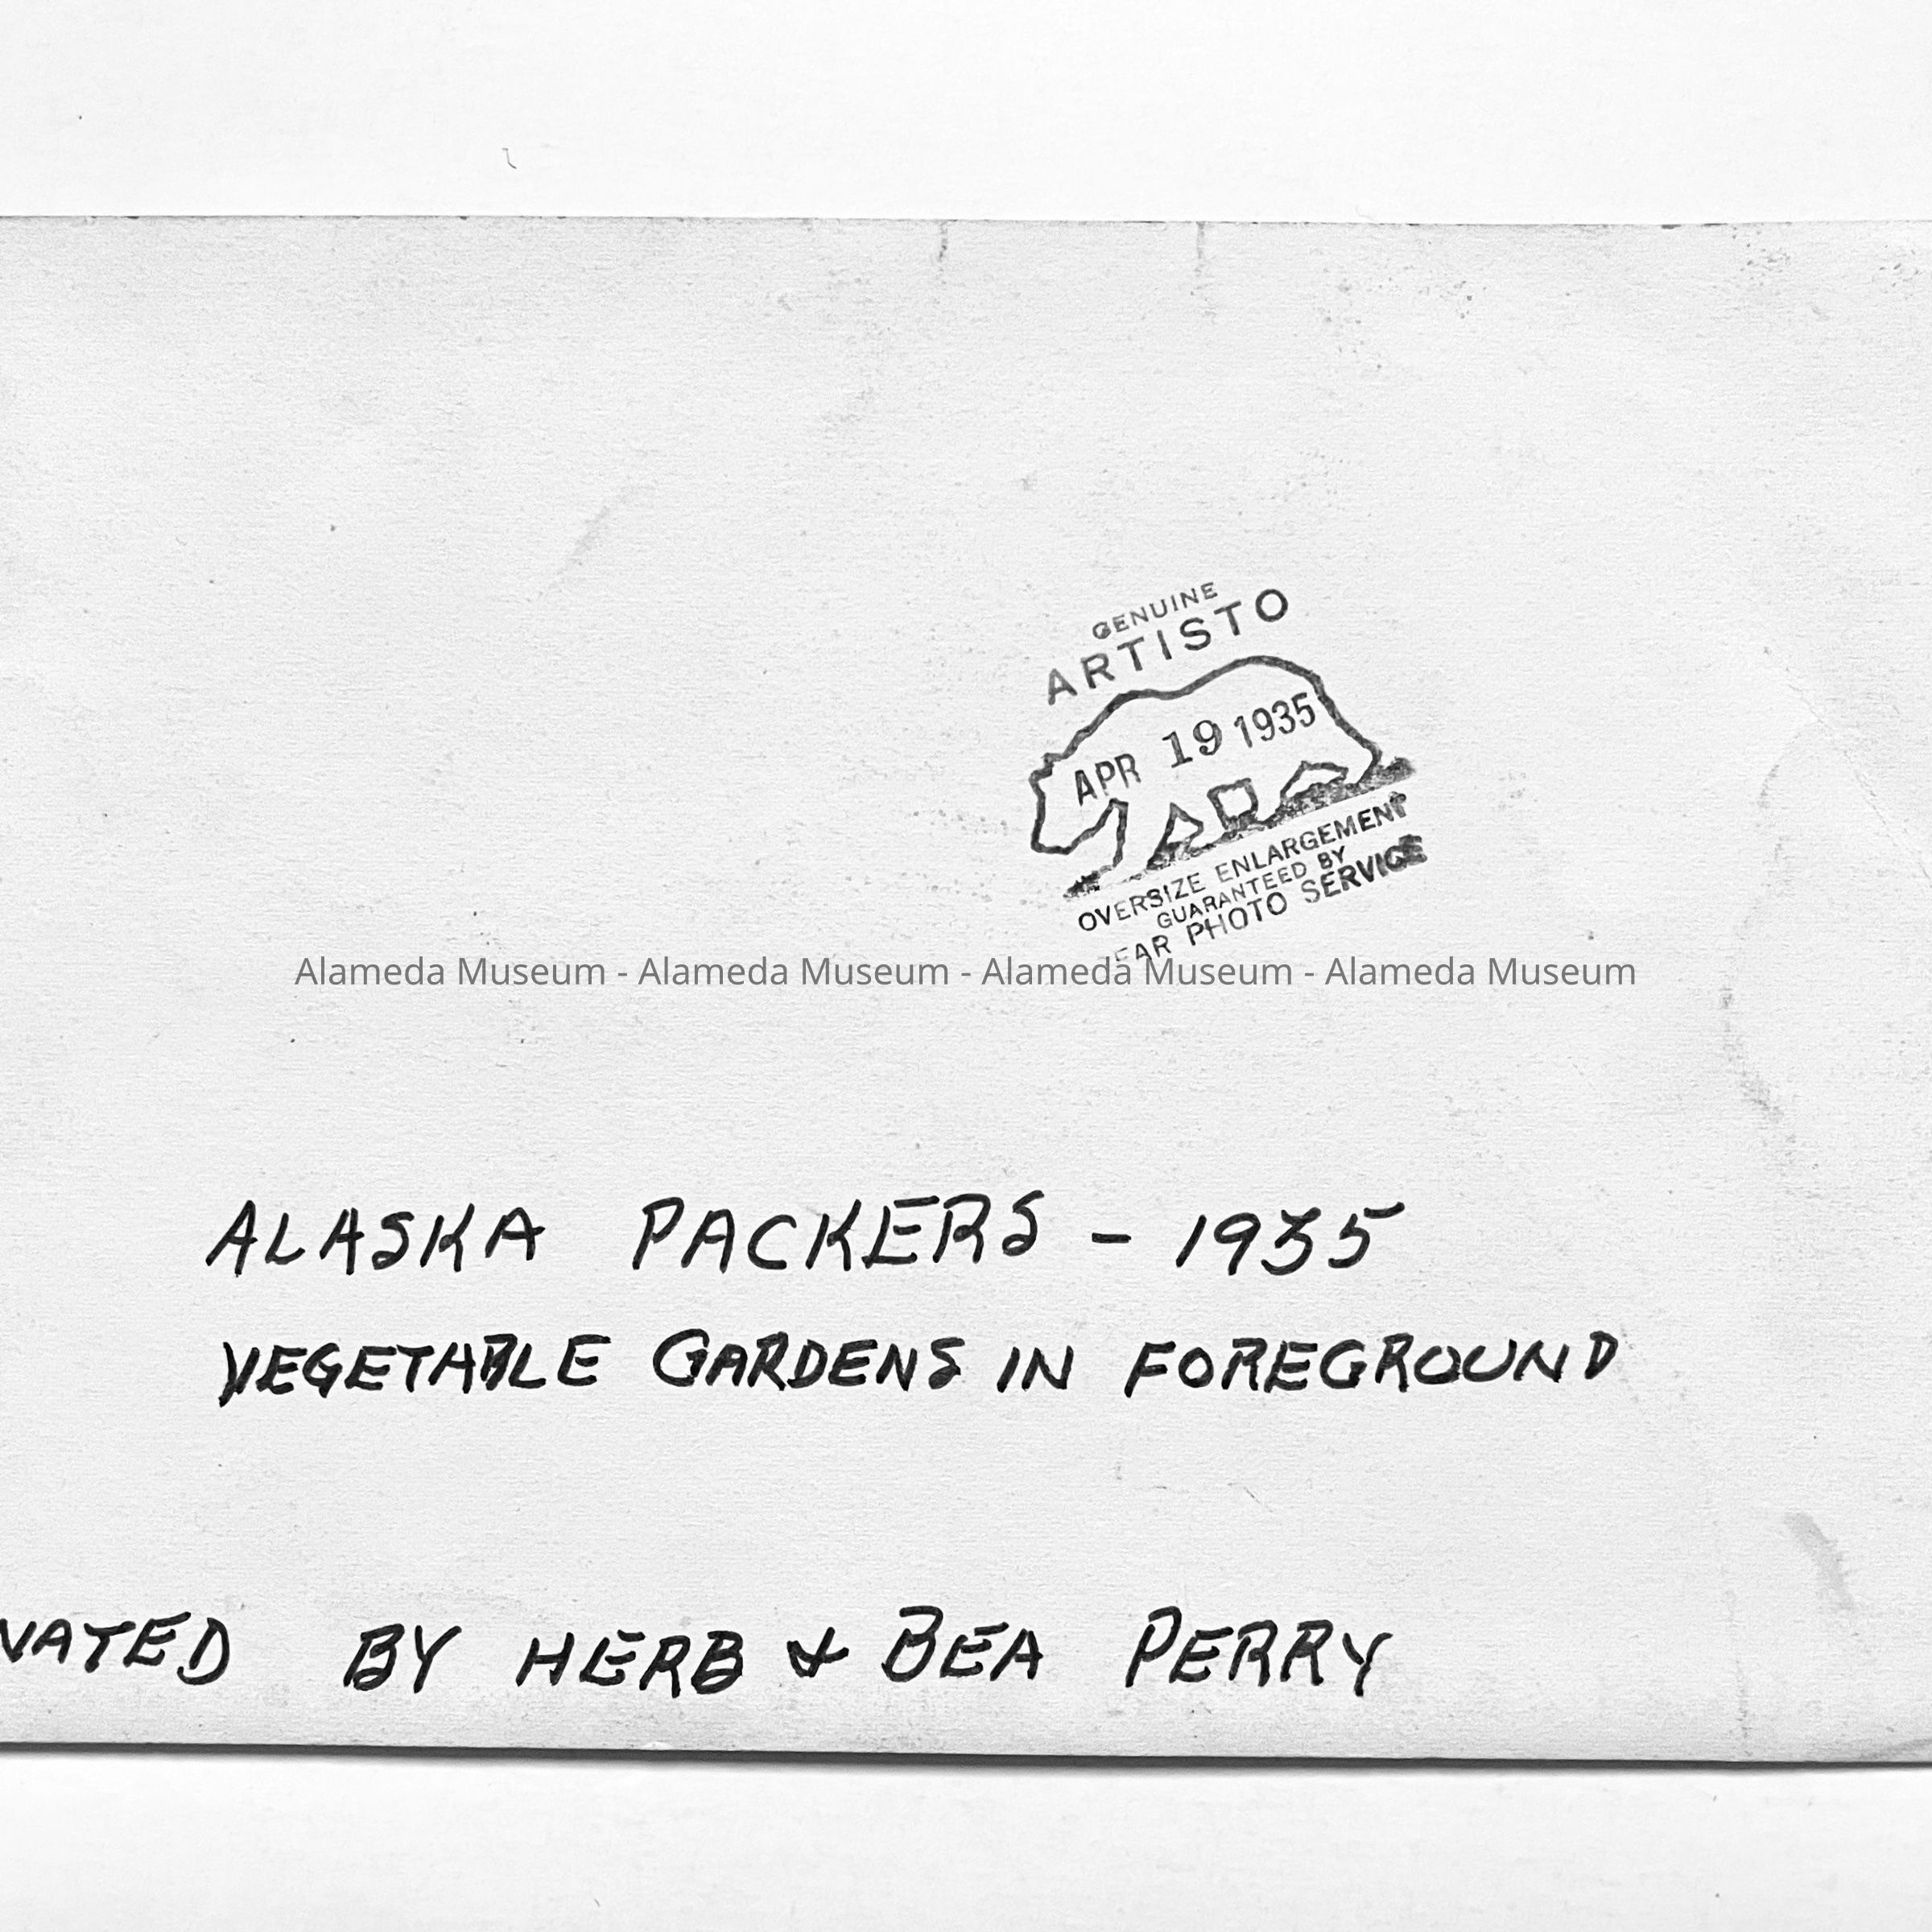 GENUINE
ARTISTO
APR 19 1935
OVERSIZE ENLARGEMENT
GUARANTEED BY
EAR PHOTO SERVICE
Alameda Museum - Alameda Museum - Alameda Museum - Alameda Museum
ALASKA PACKERS - 1935
VEGETABLE GARDENS IN FOREGROUND
NATED BY HERB & BEA PERRY